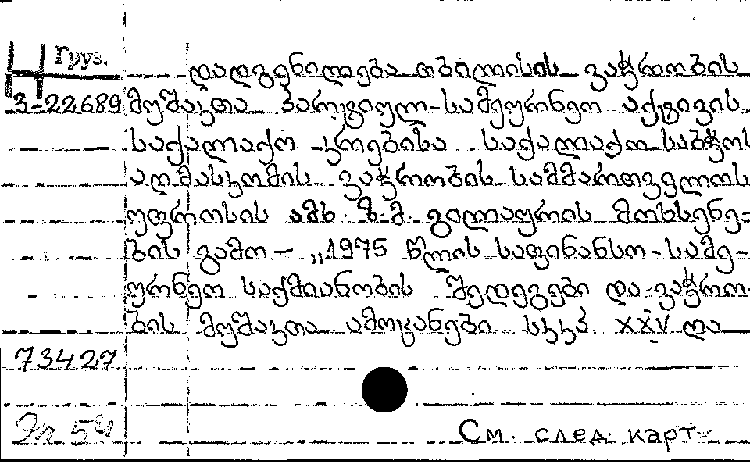 Ч Груз.
დადგენილება თბილისის ვაჭრობის
3-22689 მუშაკთა პარტიულ-სამეურნეო აქტივის
საქალაქო კრებისა საქალაქო საბჭოს
აღმასკომის ვაჭრობის სამმართველოს
უფროსის ამხ. გილაურის მოხსენე-
ბის გამო – „1975 წლის საფინანსო-სამე-
ურნეო საქმიანობის შედეგები და ვაჭრო-
ბის მუშაკთა ამოცანები სკკპ XXV და
73427
Эк 54
См. след. карт.